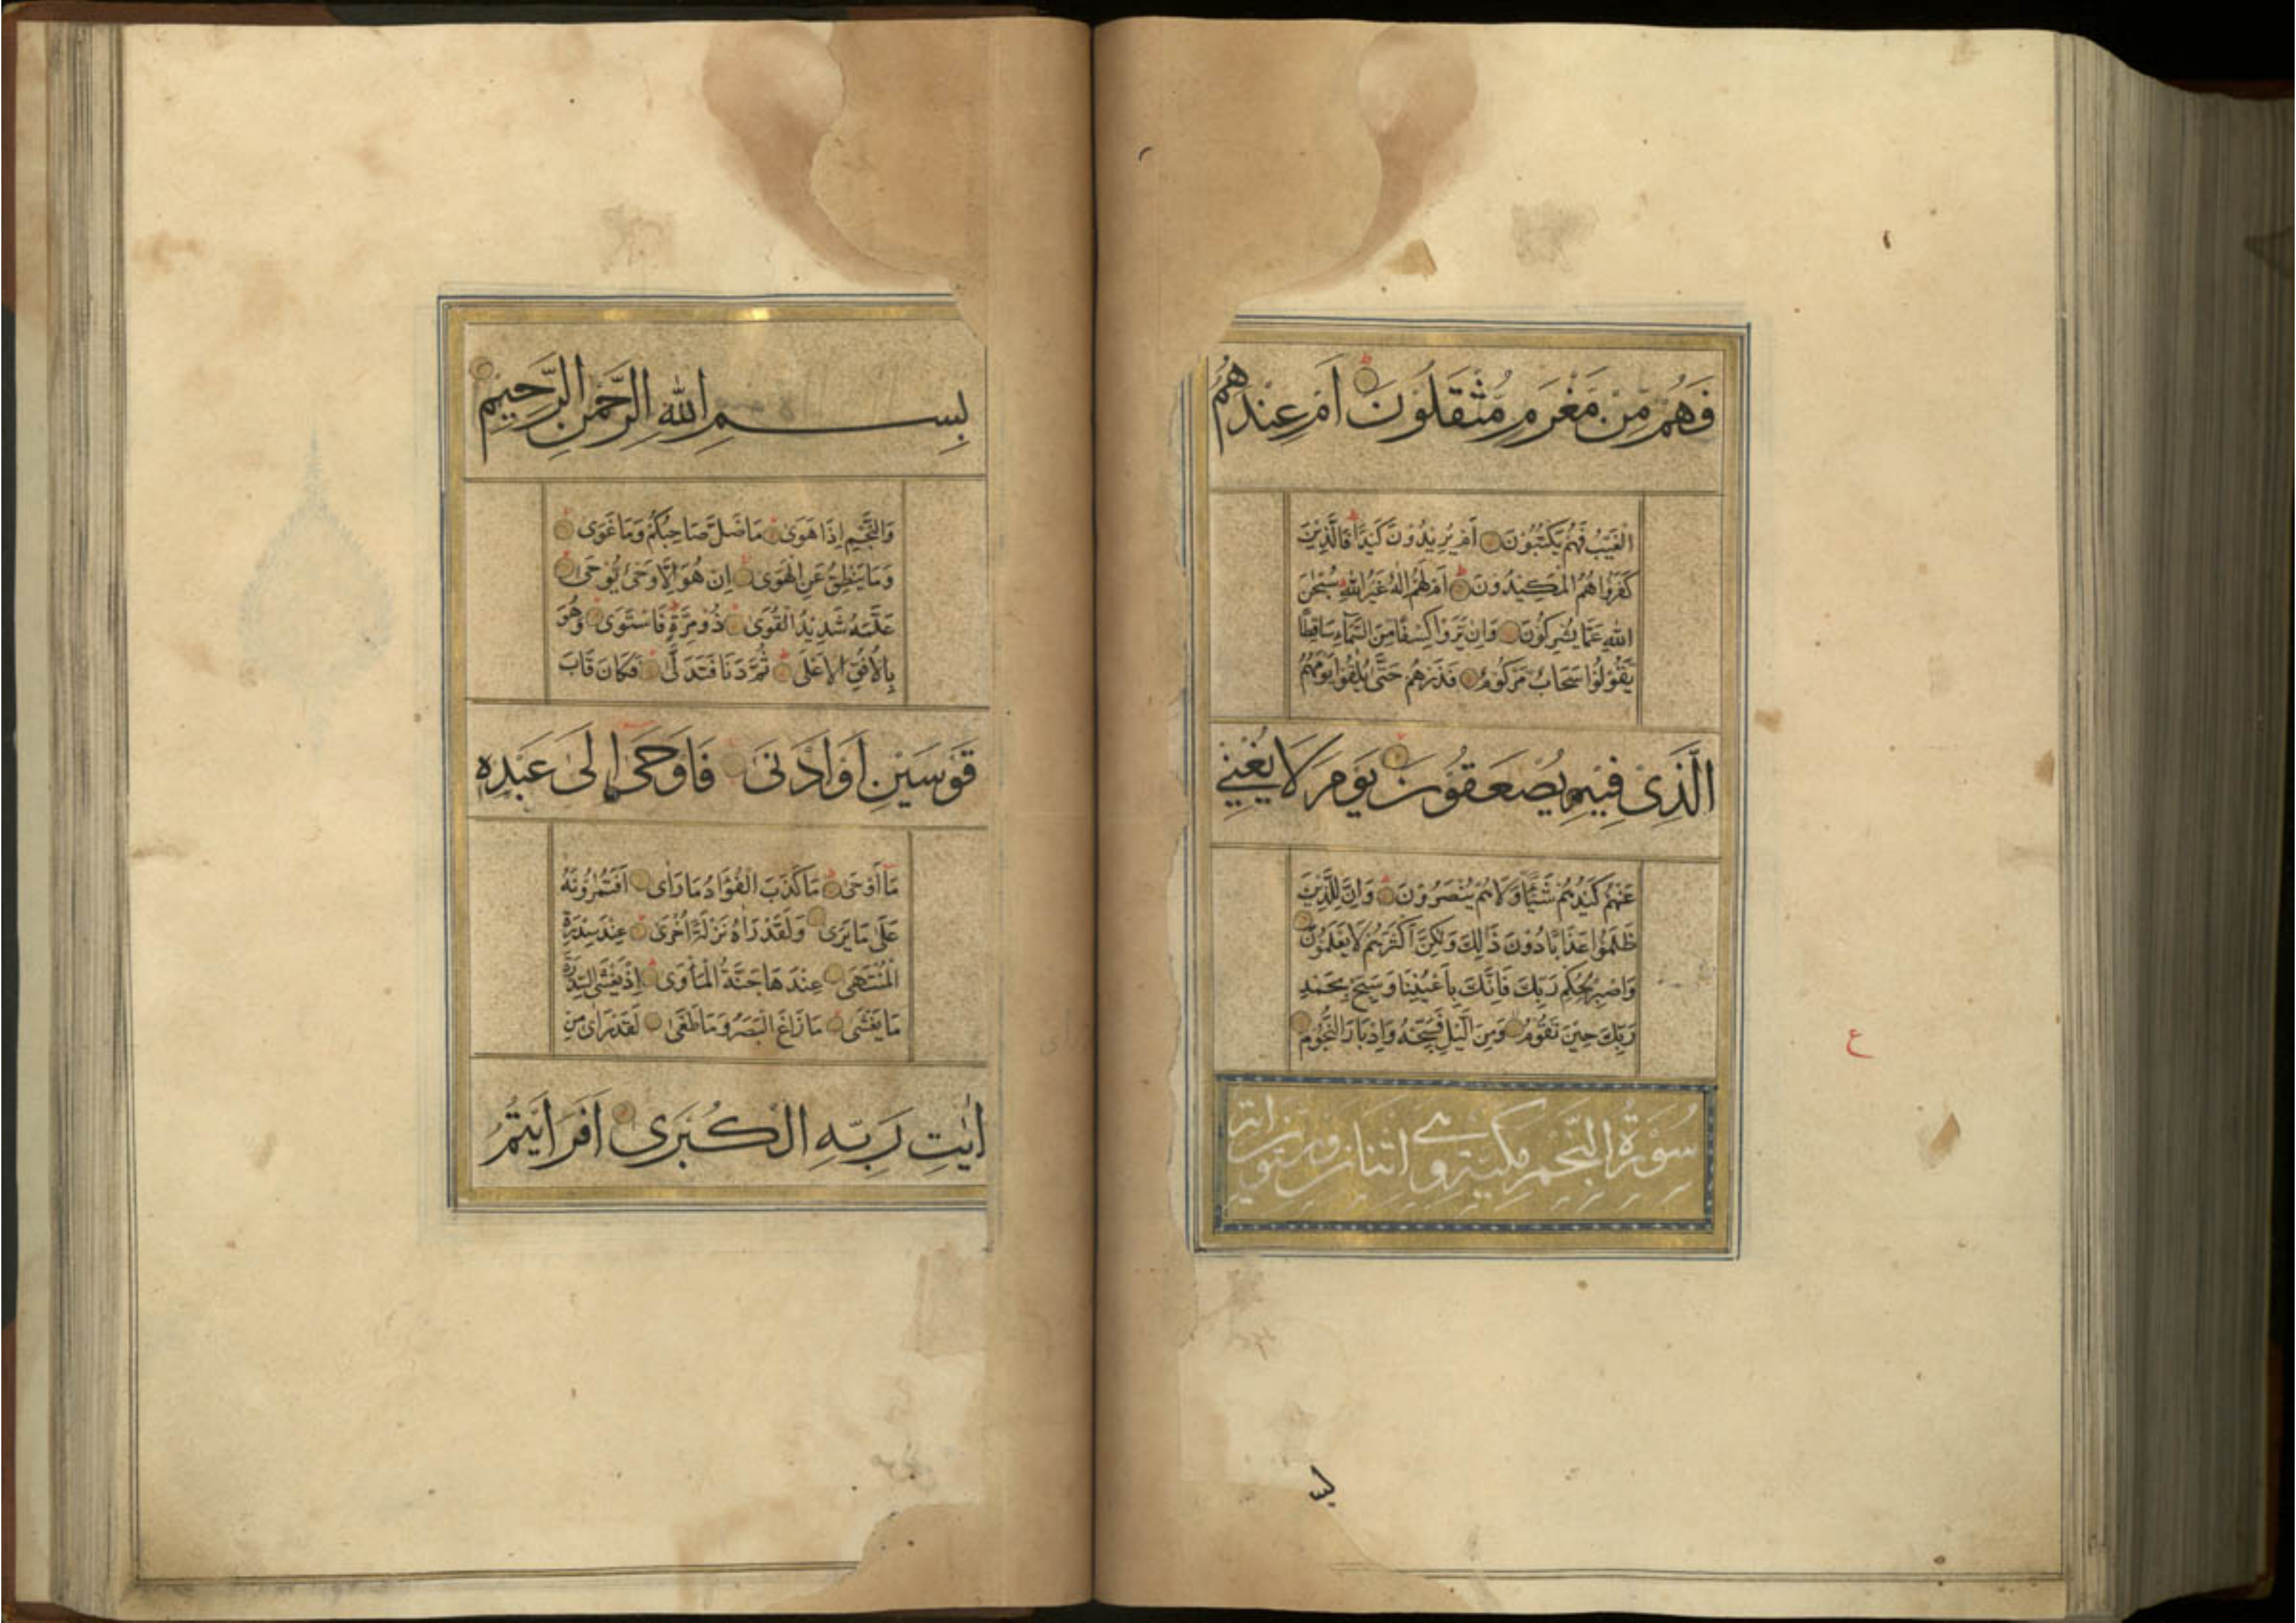 فَهُمْ مِنْ مَغْرَمٍ مُثْقَلُوْنَ اَمْ عِنْدَهُمُ
الْغَيْبُ فَهُمْ يَكْتُبُوْنَ اَمْ يُرِيْدُوْنَ كَيْدًا فَالَّذِيْنَ
كَفَرُوْا هُمُ الْمَكِيْدُوْنَ اَمْ لَهُمْ اِلٰهٌ غَيْرُ اللّٰهِ سُبْحٰنَ
اللّٰهِ عَمَّا يُشْرِكُوْنَ وَاِنْ يَرَوْا كِسْفًا مِنَ السَّمَآءِ سَاقِطًا
يَقُوْلُوْا سَحَابٌ مَرْكُوْمٌ فَذَرْهُمْ حَتّٰى يُلٰقُوْا يَوْمَهُمُ
الَّذِىْ فِيْهِ يُصْعَقُوْنَ يَوْمَ لَا يُغْنِيْ
عَنْهُمْ كَيْدُهُمْ شَيْئًا وَلَا هُمْ يُنْصَرُوْنَ وَاِنَّ لِلَّذِيْنَ
ظَلَمُوْا عَذَابًا دُوْنَ ذٰلِكَ وَلٰكِنَّ اَكْثَرَهُمْ لَا يَعْلَمُوْنَ
وَاصْبِرْ لِحُكْمِ رَبِّكَ فَاِنَّكَ بِاَعْيُنِنَا وَسَبِّحْ بِحَمْدِ
رَبِّكَ حِيْنَ تَقُوْمُ وَمِنَ الَّيْلِ فَسَبِّحْهُ وَاِدْبَارَ النُّجُوْمِ
سُوْرَةُ النَّجْمِ مَكِّيَّةٌ وهى اثنان وستون اية
ع
بسـ
بِسْمِ اللّٰهِ الرَّحْمٰنِ الرَّحِيْمِ
وَالنَّجْمِ اِذَا هَوٰى مَا ضَلَّ صَاحِبُكُمْ وَمَا غَوٰى
وَمَا يَنْطِقُ عَنِ الْهَوٰى اِنْ هُوَ اِلَّا وَحْىٌ يُوْحٰى
عَلَّمَهُ شَدِيْدُ الْقُوٰى ذُوْ مِرَّةٍ فَاسْتَوٰى وَهُوَ
بِالْاُفُقِ الْاَعْلٰى ثُمَّ دَنَا فَتَدَلّٰى فَكَانَ قَابَ
قَوْسَيْنِ اَوْ اَدْنٰى فَاَوْحٰى اِلٰى عَبْدِهِ
مَا اَوْحٰى مَا كَذَبَ الْفُؤَادُ مَا رَاٰى اَفَتُمٰرُوْنَهُ
عَلٰى مَا يَرٰى وَلَقَدْ رَاٰهُ نَزْلَةً اُخْرٰى عِنْدَ سِدْرَةِ
الْمُنْتَهٰى عِنْدَهَا جَنَّةُ الْمَأْوٰى اِذْ يَغْشَى السِّدْرَةَ
مَا يَغْشٰى مَا زَاغَ الْبَصَرُ وَمَا طَغٰى لَقَدْ رَاٰى مِنْ
اٰيٰتِ رَبِّهِ الْكُبْرٰى اَفَرَاَيْتُمُ